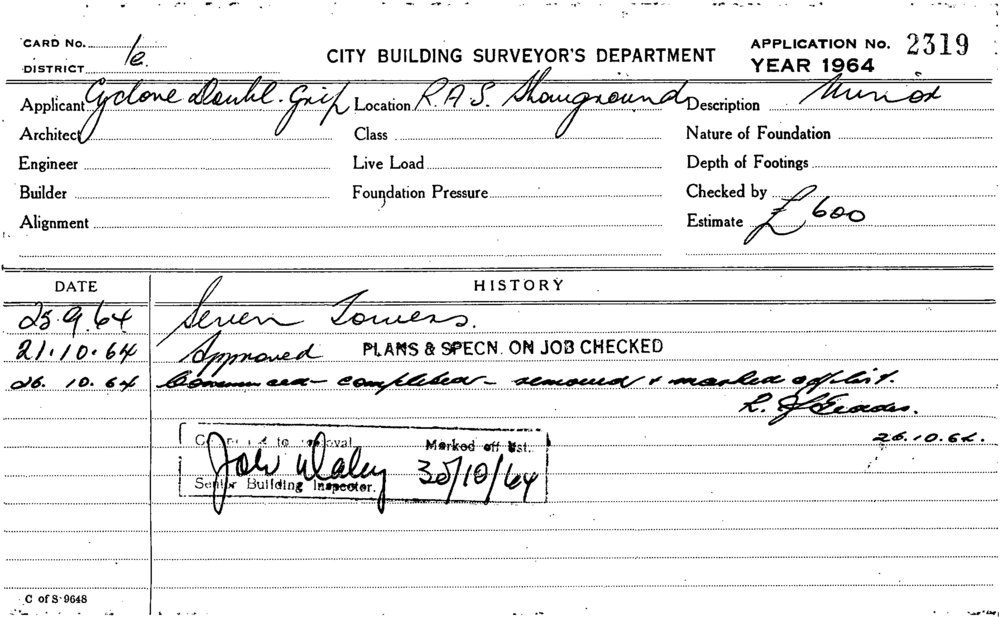 CARD No. 1e. CITY BUILDING SURVEYOR'S DEPARTMENT APPLICATION No. 2319
DISTRICT YEAR 1964
Applicant Cyclone Doubl. Grip Location R.A.S. Showground Description Minor
Architect Class Nature of Foundation
Engineer Live Load Depth of Footings
Builder Foundation Pressure Checked by
Alignment Estimate £600
DATE HISTORY
25.9.64 Seven Towers.
21.10.64 Approved PLANS & SPECN. ON JOB CHECKED
26.10.64 Commenced - completed - removed & marked off list.
26.10.64.
to Marked off list.
Daley 30/10/64
Senior Building Inspector.
C of S 9648